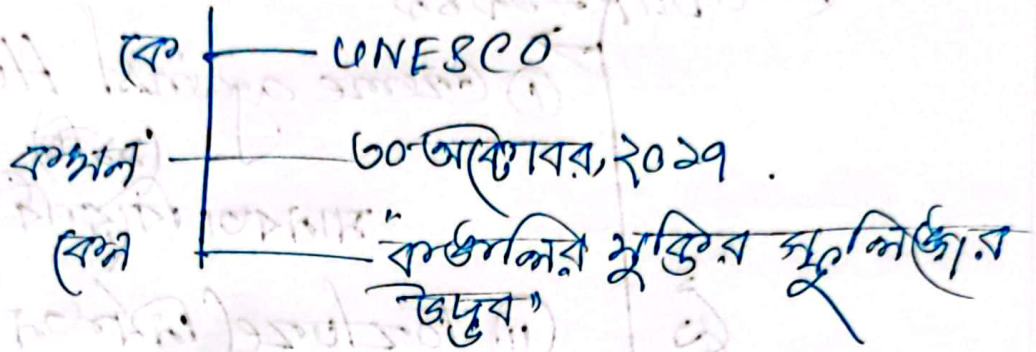 কে — UNESCO
কখন — ৩০ অক্টোবর, ২০১৭.
কেন — "বাঙালির মুক্তির স্ফুলিঙ্গের
উদ্ভব"